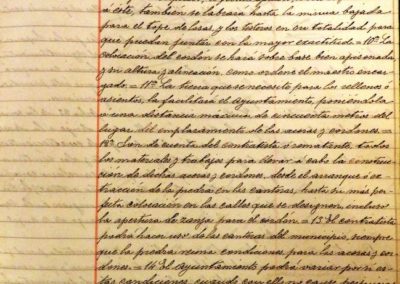 á éste, tambien se labrará hasta la misma bajada
para el tope de losas, y los testeros en su totalidad para
que puedan juntar con la mayor exactitud = 10ª La
colocacion del cordon se hará sobre base bien apisonada,
y su altura y alineacion, como ordene el maestro encar
gado = 11ª La tierra que se necesite para los rellenos ó
asientos, la facilitará el Ayuntamiento, poniendola
á una distancia máxima de cincuenta metros del
lugar del emplazamiento de las aceras y cordones =
12ª Son de cuenta del contratista ó rematante, todos
los materiales y trabajos para llevar á cabo la construc-
cion de dichas aceras y cordones, desde el arranque ó ex
traccion de la piedra en las canteras, hasta su más per
fecta colocacion en las calles que se designen, incluso
la apertura de zanja para el cordón = 13ª El contratista
podrá hacer uso de las canteras del municipio, siempre
que la piedra reuna condiciones para las aceras y cor
dones = 14ª El Ayuntamiento podrá variar
condiciones, cuando con ello no cause